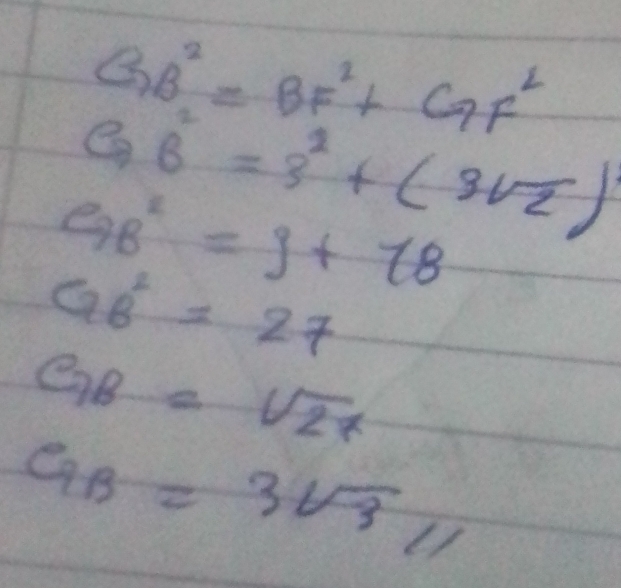 GB² = BF² + GF²
GB² = 3² + (3√2)²
GB² = 9 + 18
GB² = 27
GB = √27
GB = 3√3 //